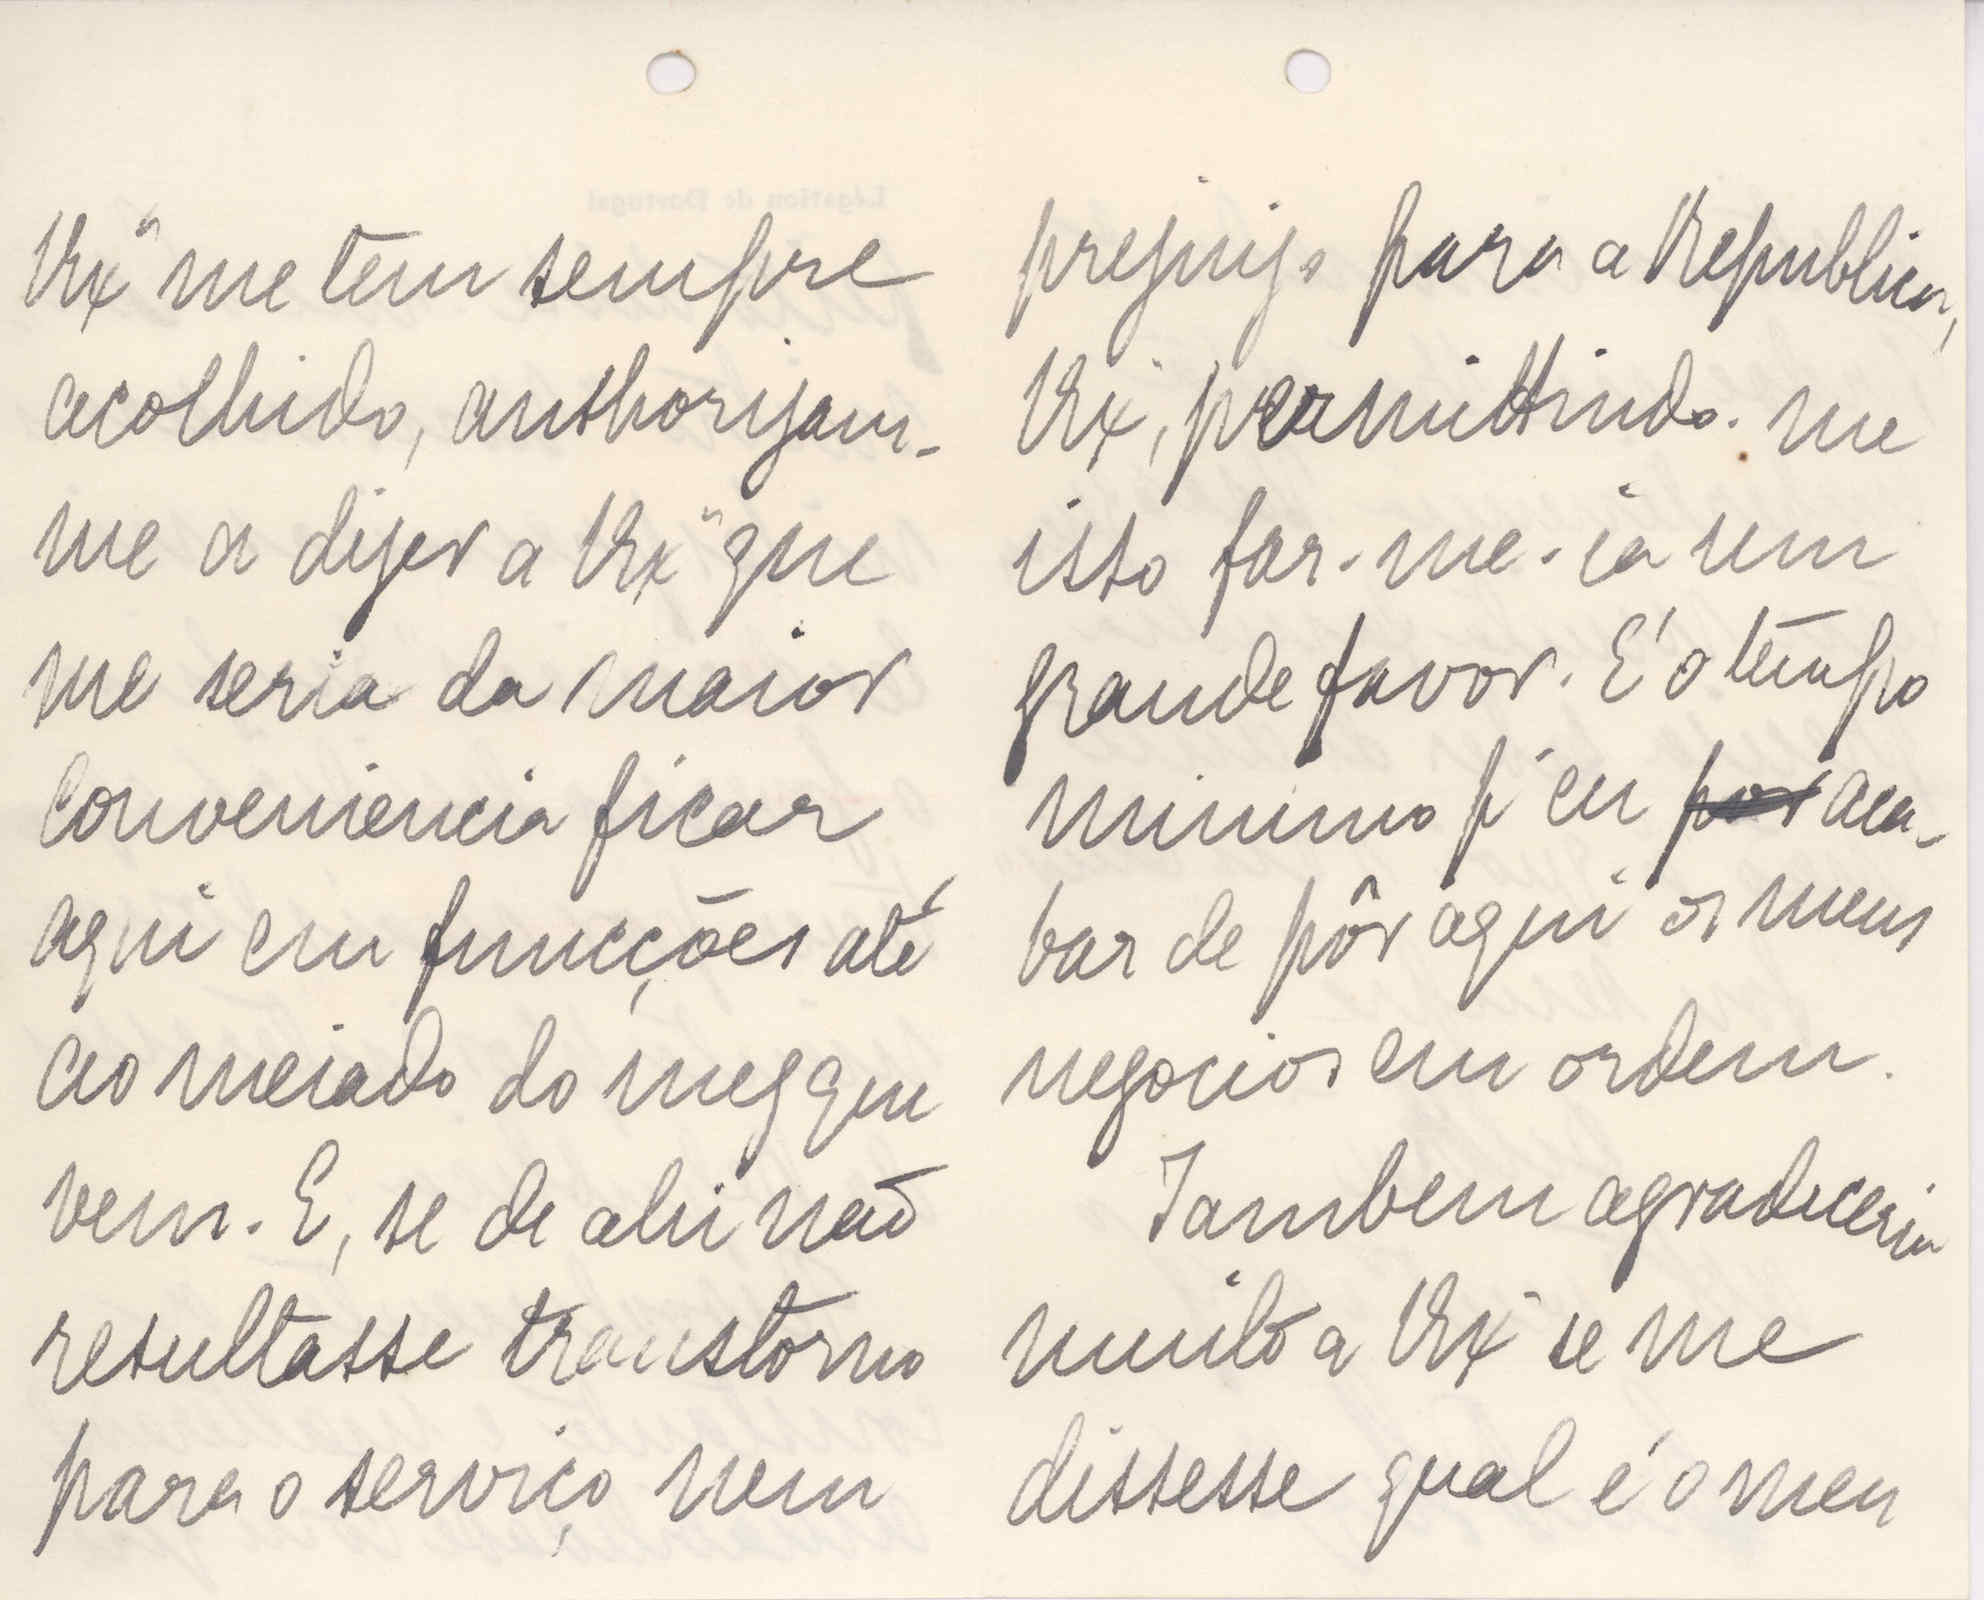 VEx.ª me tem sempre
acolhido, authorizam-
me a dizer a VEx.ª que
me seria da maior
conveniencia ficar
aqui em funcções até
ao meiado do mez que
vem. E, se de ahi não
resultasse transtorno
para o serviço nem
prejuizo para a Republica,
VEx.ª, permittindo-me
isto far-me-ia um
grande favor. É o tempo
minimo p.ª eu por aca-
bar de pôr aqui os meus
negocios em ordem.
Tambem agradeceria
muito a VEx.ª se me
dissesse qual é o meu
Légation de Portugal